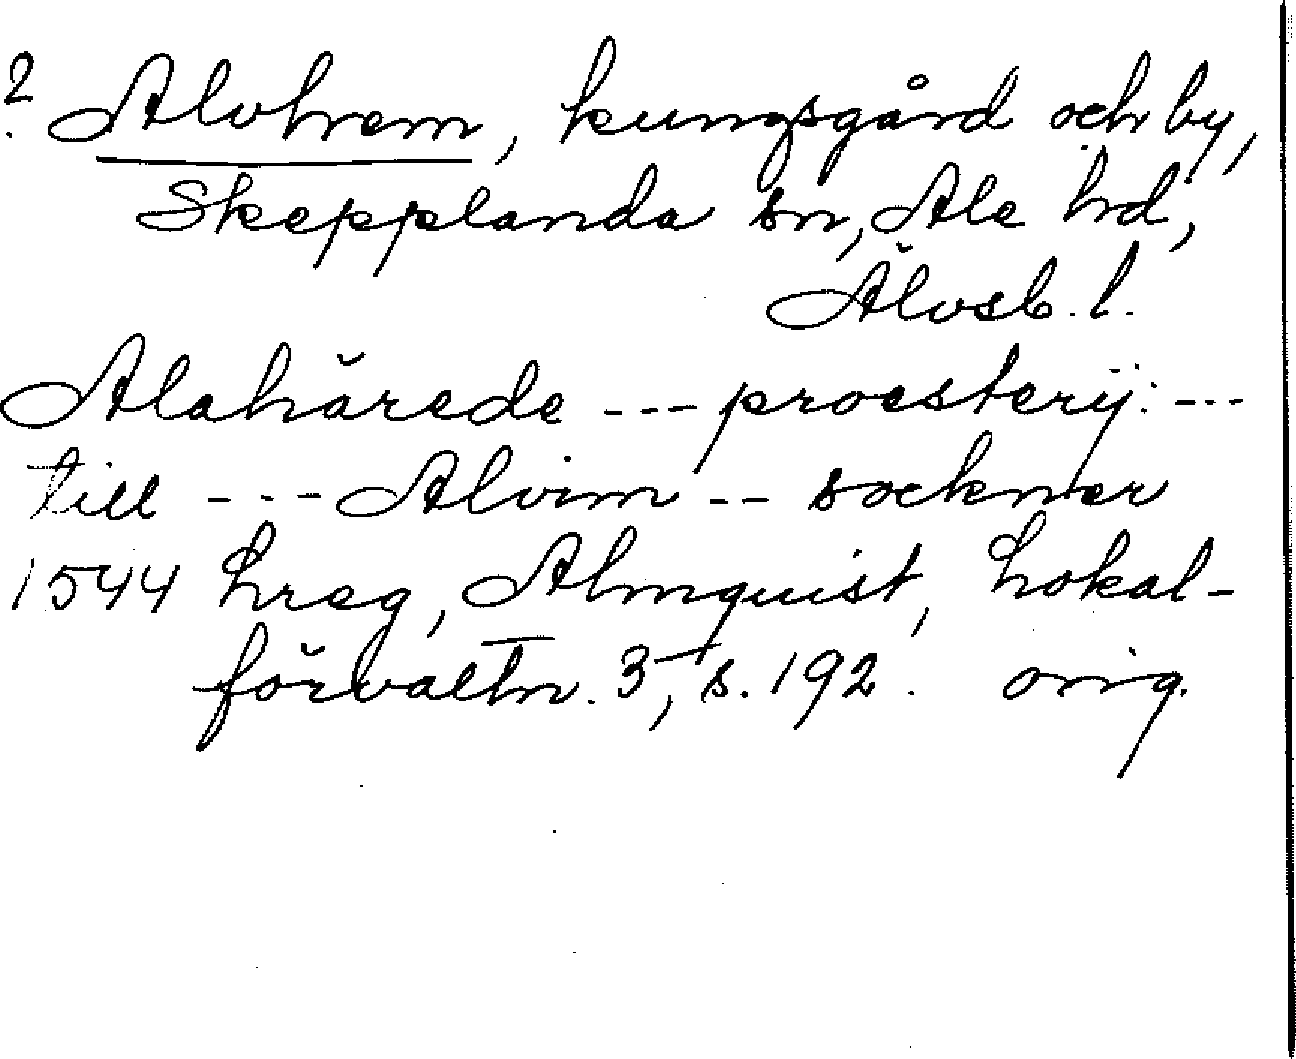 ? Alvhem, kungsgård och by,
Skepplanda sn, Ale hd,
Älvsb. l.
Alahärede --- proestery: ---
till --- Alvim -- sockner
1544 hreg, Almquist, Lokal-
förvaltn. 3, s. 192. orig.